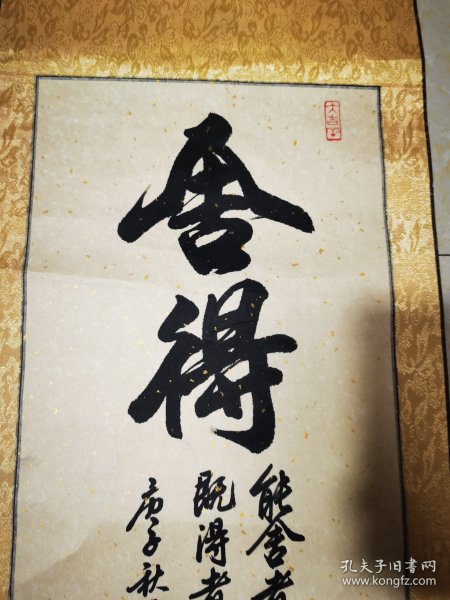 舍得
能舍者
既得者
庚子秋
大吉
孔夫子旧书网
www.kongfz.com